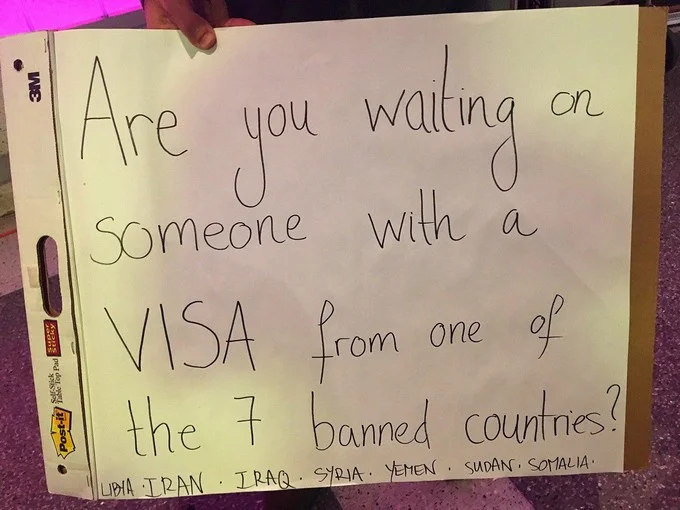 Are you waiting on
someone with a
VISA from one of
the 7 banned countries?
LIBYA · IRAN · IRAQ · SYRIA · YEMEN · SUDAN · SOMALIA ·
3M
Super
Sticky
Self-Stick
Table Top Pad
Post-it